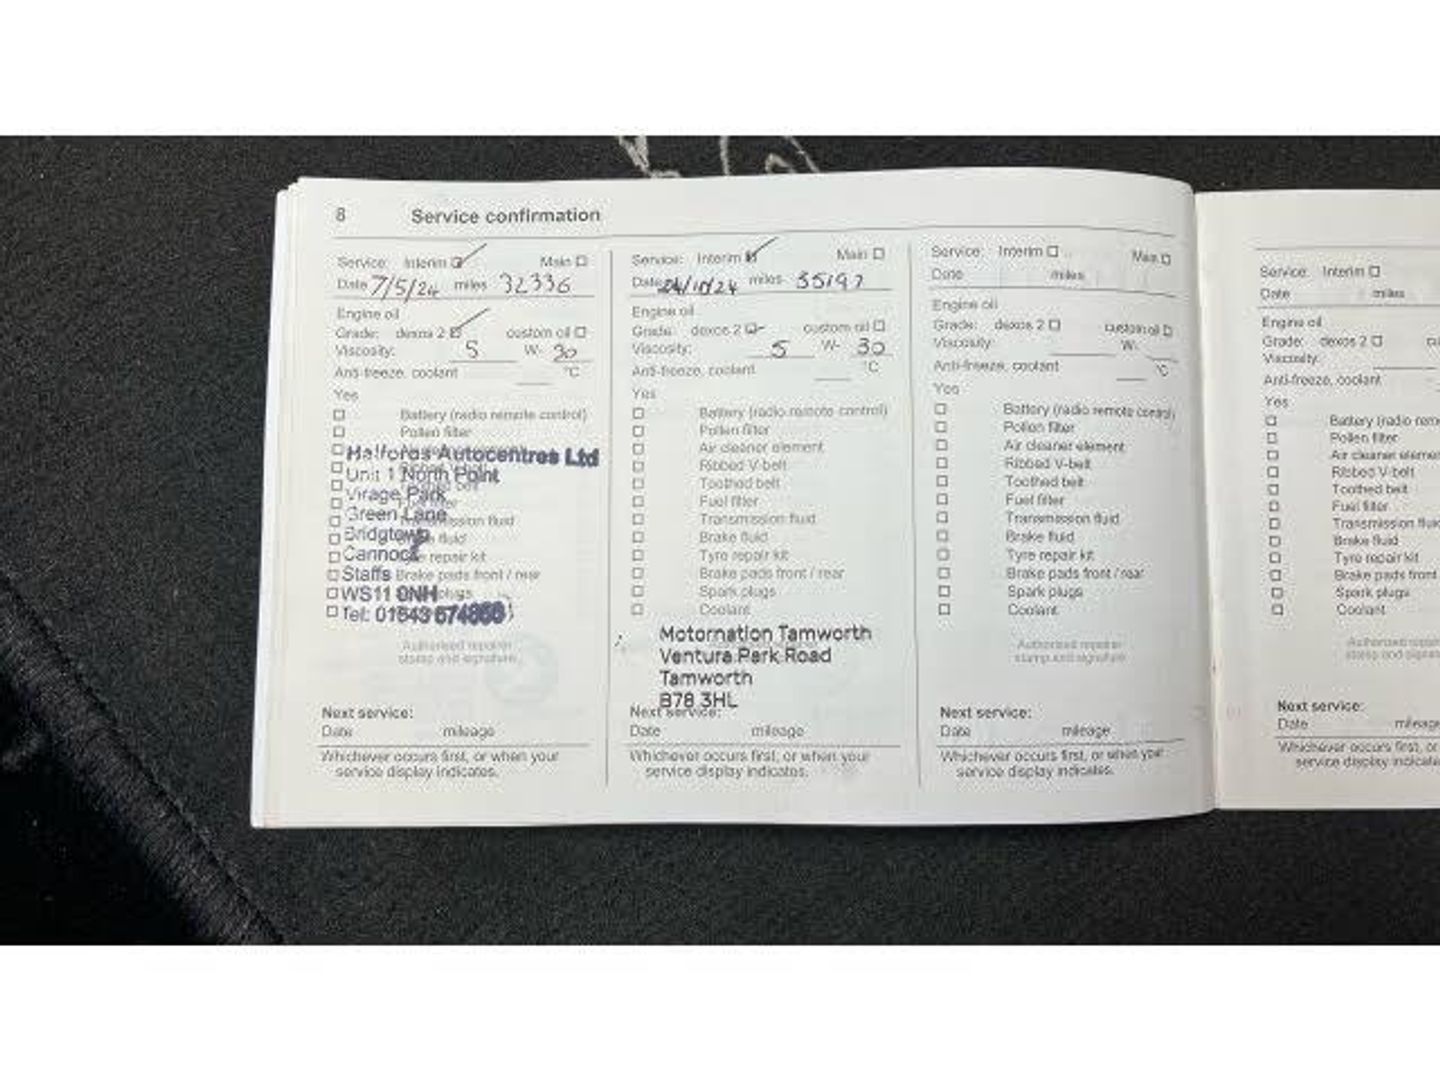 8 Service confirmation
Service: Interim Main
Date 7/5/24 miles 32336
Engine oil
Grade: dexos 2 custom oil
Viscosity: 5 W- 30
Anti-freeze, coolant °C
Yes
Battery (radio remote control)
Pollen filter
Halfords Autocentres Ltd
Unit 1 North Point
Virage Park
Green Lane
Bridgtown
Cannock repair kit
Staffs Brake pads front / rear
WS11 0NH
Tel: 01543
Authorised repairer
stamp and signature
Next service:
Date mileage
Whichever occurs first, or when your
service display indicates.
Service: Interim Main
Date 24/10/24 miles 35197
Engine oil
Grade: dexos 2 custom oil
Viscosity: 5 W- 30
Anti-freeze, coolant °C
Yes
Battery (radio remote control)
Pollen filter
Air cleaner element
Ribbed V-belt
Toothed belt
Fuel filter
Transmission fluid
Brake fluid
Tyre repair kit
Brake pads front / rear
Spark plugs
Coolant
Motornation Tamworth
Ventura Park Road
Tamworth
B78 3HL
Next service:
Date mileage
Whichever occurs first, or when your
service display indicates.
Service: Interim Main
Date miles
Engine oil
Grade: dexos 2 custom oil
Viscosity: W-
Anti-freeze, coolant °C
Yes
Battery (radio remote control)
Pollen filter
Air cleaner element
Ribbed V-belt
Toothed belt
Fuel filter
Transmission fluid
Brake fluid
Tyre repair kit
Brake pads front / rear
Spark plugs
Coolant
Authorised repairer
stamp and signature
Next service:
Date mileage
Whichever occurs first, or when your
service display indicates.
Service: Interim
Date miles
Engine oil
Grade: dexos 2 cu
Viscosity:
Anti-freeze, coolant
Yes
Battery (radio remo
Pollen filter
Air cleaner elemen
Ribbed V-belt
Toothed belt
Fuel filter
Transmission fluid
Brake fluid
Tyre repair kit
Brake pads front
Spark plugs
Coolant
Authorised repair
stamp and signatur
Next service:
Date mileage
Whichever occurs first, or
service display indicate